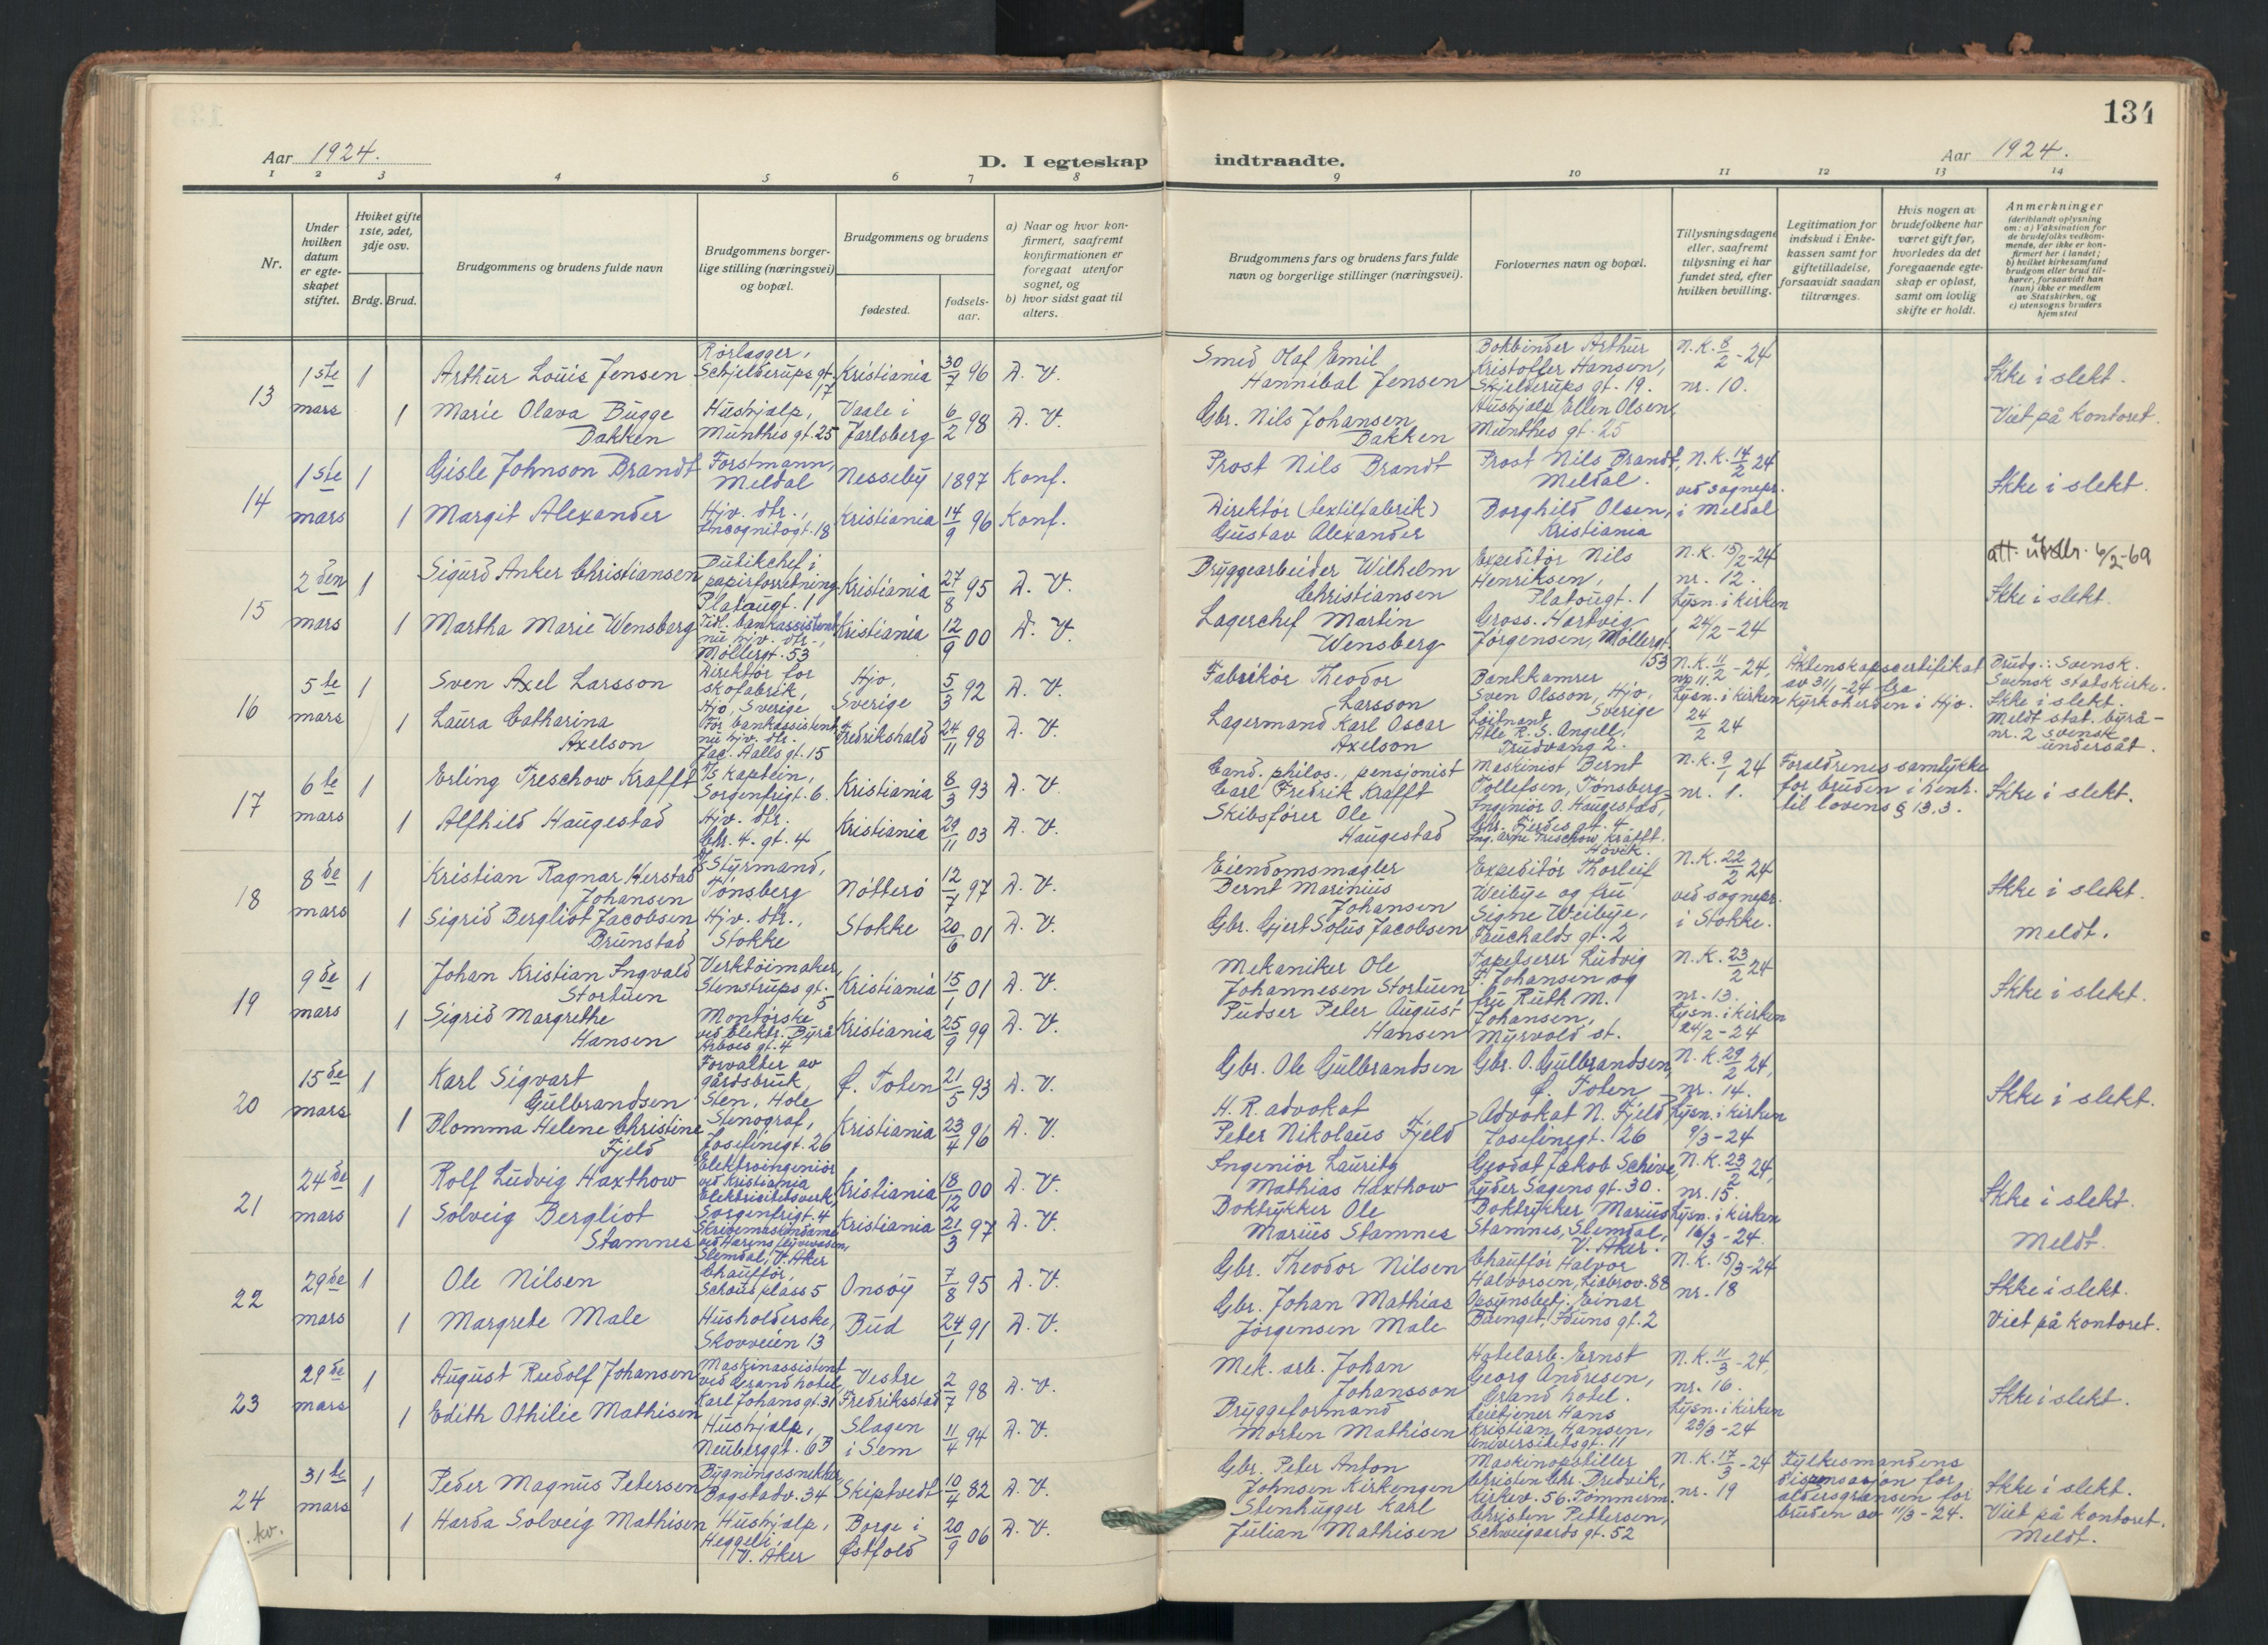 134
Aar 1924.
D. I egteskap indtraadte.
Aar 1924.
1 2 3 4 5 6 7 8 9 10 11 12 13 14
Nr.
Under hvilken datum er egte-skapet stiftet.
Hviket gifte 1ste, 2det, 3dje osv.
Brdg. Brud.
Brudgommens og brudens fulde navn
Brudgommens borger-lige stilling (næringsvei) og bopæl.
Brudgommens og brudens
fødested.
fødsels-aar.
a) Naar og hvor kon-firmert, saafremt konfirmationen er foregaat utenfor sognet, og
b) hvor sidst gaat til alters.
Brudgommens fars og brudens fars fulde navn og borgerlige stillinger (næringsvei).
Forlovernes navn og bopæl.
Tillysningsdagene eller, saafremt tillysning ei har fundet sted, efter hvilken bevilling.
Legitimation for indskud i Enke-kassen samt for giftetilladelse, forsaavidt saadan tiltrænges.
Hvis nogen av brudefolkene har været gift før, hvorledes da det foregaaende egte-skap er opløst, samt om lovlig skifte er holdt.
Anmerkninger
(deriblandt oplysning om: a) Vaksination for de brudefolks vedkom-mende, der ikke er kon-firmert her i landet; b) hvilket kirkesamfund brudgom eller brud til-hører, forsaavidt han (hun) ikke er medlem av Statskirken, og c) utensogns bruders hjemsted
13 1ste mars 1 Arthur Louis Jensen Rørlægger, Schjelderups gt. 17 Kristiania 30/7 96 D. V. Smed Olaf Emil Hannibal Jensen Bokbinder Arthur Kristoffer Hansen, Skjelderups gt. 19. N.K. 8/2-24 nr. 10. Ikke i slekt.
1 Marie Olava Bugge Bakken Hushjælp, Munthes gt. 25 Vaale i Jarlsberg 6/2 98 D. V. Gbr. Nils Johansen Bakken Hushjælp Ellen Olsen, Munthes gt. 25 Viet på kontoret.
14 1ste mars 1 Gisle Johnson Brandt Forstmann, Meldal Nesseby 1897 Konf. Prost Nils Brandt Prost Nils Brandt, Meldal. N.K. 14/2 24 ved sognepr. i Meldal Ikke i slekt.
1 Margit Alexander Hjv. dtr., Incognitogt. 18 Kristiania 14/9 96 Konf. Direktör (textilfabrik) Gustav Alexander Borghild Olsen, Kristiania
15 2den mars 1 Sigurd Anker Christiansen Butikchef i papirforretning Platougt. 1 Kristiania 27/8 95 D. V. Bryggearbeider Wilhelm Christiansen Expeditör Nils Henriksen, Platougt. 1 N.K. 15/2-24 nr. 12. Lysn. i kirken 24/2-24 att. utstedt 6/2-69 Ikke i slekt.
1 Martha Marie Wensberg Tidl. bankassistent nu hjv. dtr., Möllergt. 53 Kristiania 12/9 00 D. V. Lagerchef Martin Wensberg Gross. Hartvig Jørgensen, Möllergt. 53
16 5te mars 1 Sven Axel Larsson Direktör for skofabrik, Hjo, Sverige Hjo, Sverige 5/3 92 D. V. Fabrikör Theodor Larsson Bankkamrer Sven Olsson, Hjo, Sverige N.K. 11/2-24, nr. 11. Lysn. i kirken 24/2 24 Äktenskapscertifikat av 31/1-24 fra kyrkoherden i Hjo. Brudg.: Svensk. Svensk statskirke. Ikke i slekt. Meldt stat. byrå - nr. 2 svensk undersåt.
1 Laura Catharina Axelson Før bankassistent, nu hjv. dtr. Jac. Aalls gt. 15 Fredrikshald 24/11 98 D. V. Lagermand Karl Oscar Axelson Löitnant Atle R. S. Angell, Trudvang 2.
17 6te mars 1 Erling Treschow Krafft D/S kaptein, Sorgenfrigt. 6. Kristiania 8/3 93 D. V. Cand. philos., pensjonist Carl Fredrik Krafft Maskinist Bernt Tollefsen, Tønsberg N.K. 9/1 24 nr. 1. Forældrenes samtykke for bruden i henh. til lovens § 13.3. Ikke i slekt.
1 Alfhild Haugestad Hjv. dtr. Chr. 4. gt. 4 Kristiania 29/11 03 D. V. Skibsfører Ole Haugestad Ingeniör O. Haugestad, Chr. Fjerdes gt. 4 Ing. Arne Treschow Krafft. Hövik.
18 8de mars 1 Kristian Ragnar Herstad Johansen D/S Styrmand, Tønsberg Nøtterø 12/7 97 D. V. Eiendomsmægler Bernt Marinius Johansen Expeditör Thorleif Weibye og fru Signe Weibye, Fauchalds gt. 2 N.K. 22/2 24 ved sognepr. i Stokke. Ikke i slekt.
1 Sigrid Bergliot Jacobsen Brunstad Hjv. dtr., Stokke Stokke 20/6 01 D. V. Gbr. Gjert Sofus Jacobsen Meldt.
19 9de mars 1 Johan Kristian Ingvald Stortuen Verktöimaker, Stenstrups gt. 5 Kristiania 15/1 01 D. V. Mekaniker Ole Johannesen Stortuen Tapetserer Ludvig F. Johansen og fru Ruth M. Johansen, Myrvold st. N.K. 23/2 24 nr. 13. Lysn. i kirken 24/2-24 Ikke i slekt.
1 Sigrid Margrethe Hansen Montörske ved Elektr. Byrå Arboes gt. 4 Kristiania 25/9 99 D. V. Pudser Peter August Hansen
20 15de mars 1 Karl Sigvart Gulbrandsen Forvalter av gårdsbruk, Sten, Hole Ø. Toten 21/5 93 D. V. Gbr. Ole Gulbrandsen Gbr. O. Gulbrandsen, Ø. Toten N.K. 29/2 24, nr. 14. Lysn. i kirken 9/3-24 Ikke i slekt.
1 Blomma Helene Christine Fjeld Stenograf, Josefinegt. 26 Kristiania 23/4 96 D. V. H. R. advokat Peter Nikolaus Fjeld Advokat N. Fjeld, Josefinegt. 26
21 24de mars 1 Rolf Ludvig Haxthow Elektroingeniör ved Kristiania Elektricitetsverk, Sorgenfrigt. 4 Kristiania 18/12 00 D. V. Ingeniör Lauritz Mathias Haxthow Geodat Jakob Schive, Lyder Sagens gt. 30. N.K. 23/2 24, nr. 15. Lysn. i kirken 16/3-24. Ikke i slekt.
1 Solveig Bergliot Stamnes Skrivemaskindame ved Hærens flyvevæsen, Slemdal, V. Aker Kristiania 21/3 97 D. V. Boktrykker Ole Marius Stamnes Boktrykker Marius Stamnes, Slemdal, V. Aker. Meldt.
22 29de mars 1 Ole Nilsen Chauffør, Schous plass 5 Onsøy 7/8 95 D. V. Gbr. Theodor Nilsen Chauffør Halvor Halvorsen, Liabrov. 88 N.K. 15/3-24 nr. 18 Ikke i slekt.
1 Margrete Male Husholderske, Skovveien 13 Bud 24/1 91 D. V. Gbr. Johan Mathias Jørgensen Male Opsynsbetj. Einar Baenget, Iduns gt. 2 Viet på kontoret.
23 29de mars 1 August Rudolf Johansen Maskinassistent ved Grand hotel, Karl Johans gt. 31 Vestre Fredriksstad 2/7 98 D. V. Mek. arb. Johan Johansson Hotelarb. Ernst Georg Andresen, Grand hotel. N.K. 11/3-24, nr. 16. Lysn. i kirken 23/3-24 Ikke i slekt.
1 Edith Othilie Mathisen Hushjælp, Neuberggt. 6B Slagen i Sem 11/4 94 D. V. Bryggeformand Morten Mathisen Leietjener Hans Kristian Hansen, Universitetsgt. 11
24 31te mars 1 Peder Magnus Petersen Bygningssnekker Bogstadv. 34 Skiptvedt 10/4 82 D. V. Gbr. Peter Anton Johnsen Kirkengen Maskinopstiller Christen Chr. Bredvik, Kirkev. 56. N.K. 17/3-24 nr. 19 Fylkesmandens dispensasjon for aldersgrænsen for bruden av 11/3-24. Ikke i slekt. Viet på kontoret. Meldt.
1 Harda Solveig Mathisen Hushjælp, Heggeli, V. Aker Borge i Østfold 20/9 06 D. V. Stenhugger Karl Julian Mathisen Tømmerm. Christen Pettersen, Schweigaards gt. 52
1. kv.